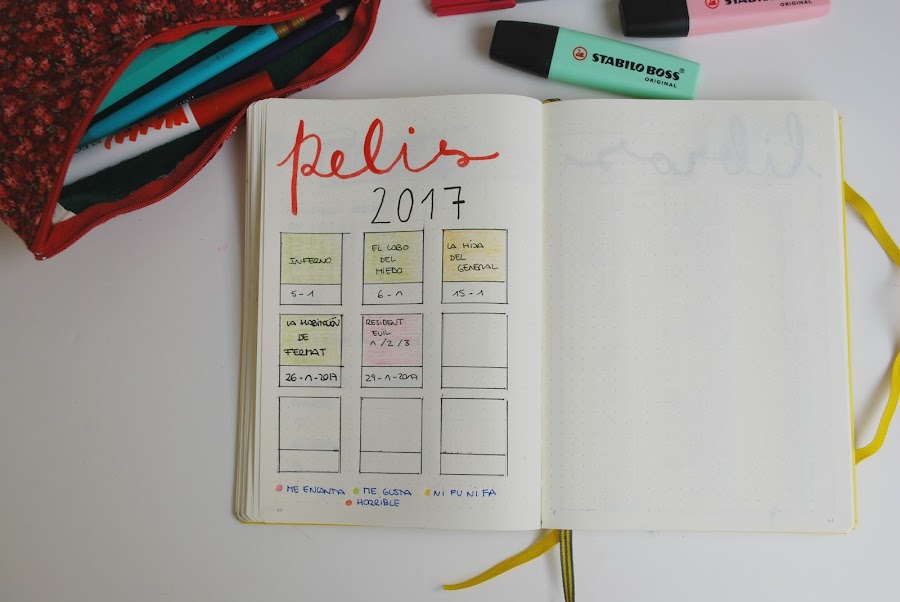 STABILO BOSS
ORIGINAL
STABILO
ORIGINAL
pelis
2017
INFERNO
5-1
EL CABO
DEL
MIEDO
6-1
LA HIJA
DEL
GENERAL
15-1
LA HABITACIÓN
DE
FERMAT
26-1-2017
RESIDENT
EVIL
1/2/3
29-1-2017
ME ENCANTA
ME GUSTA
NI FU NI FA
HORRIBLE
libros